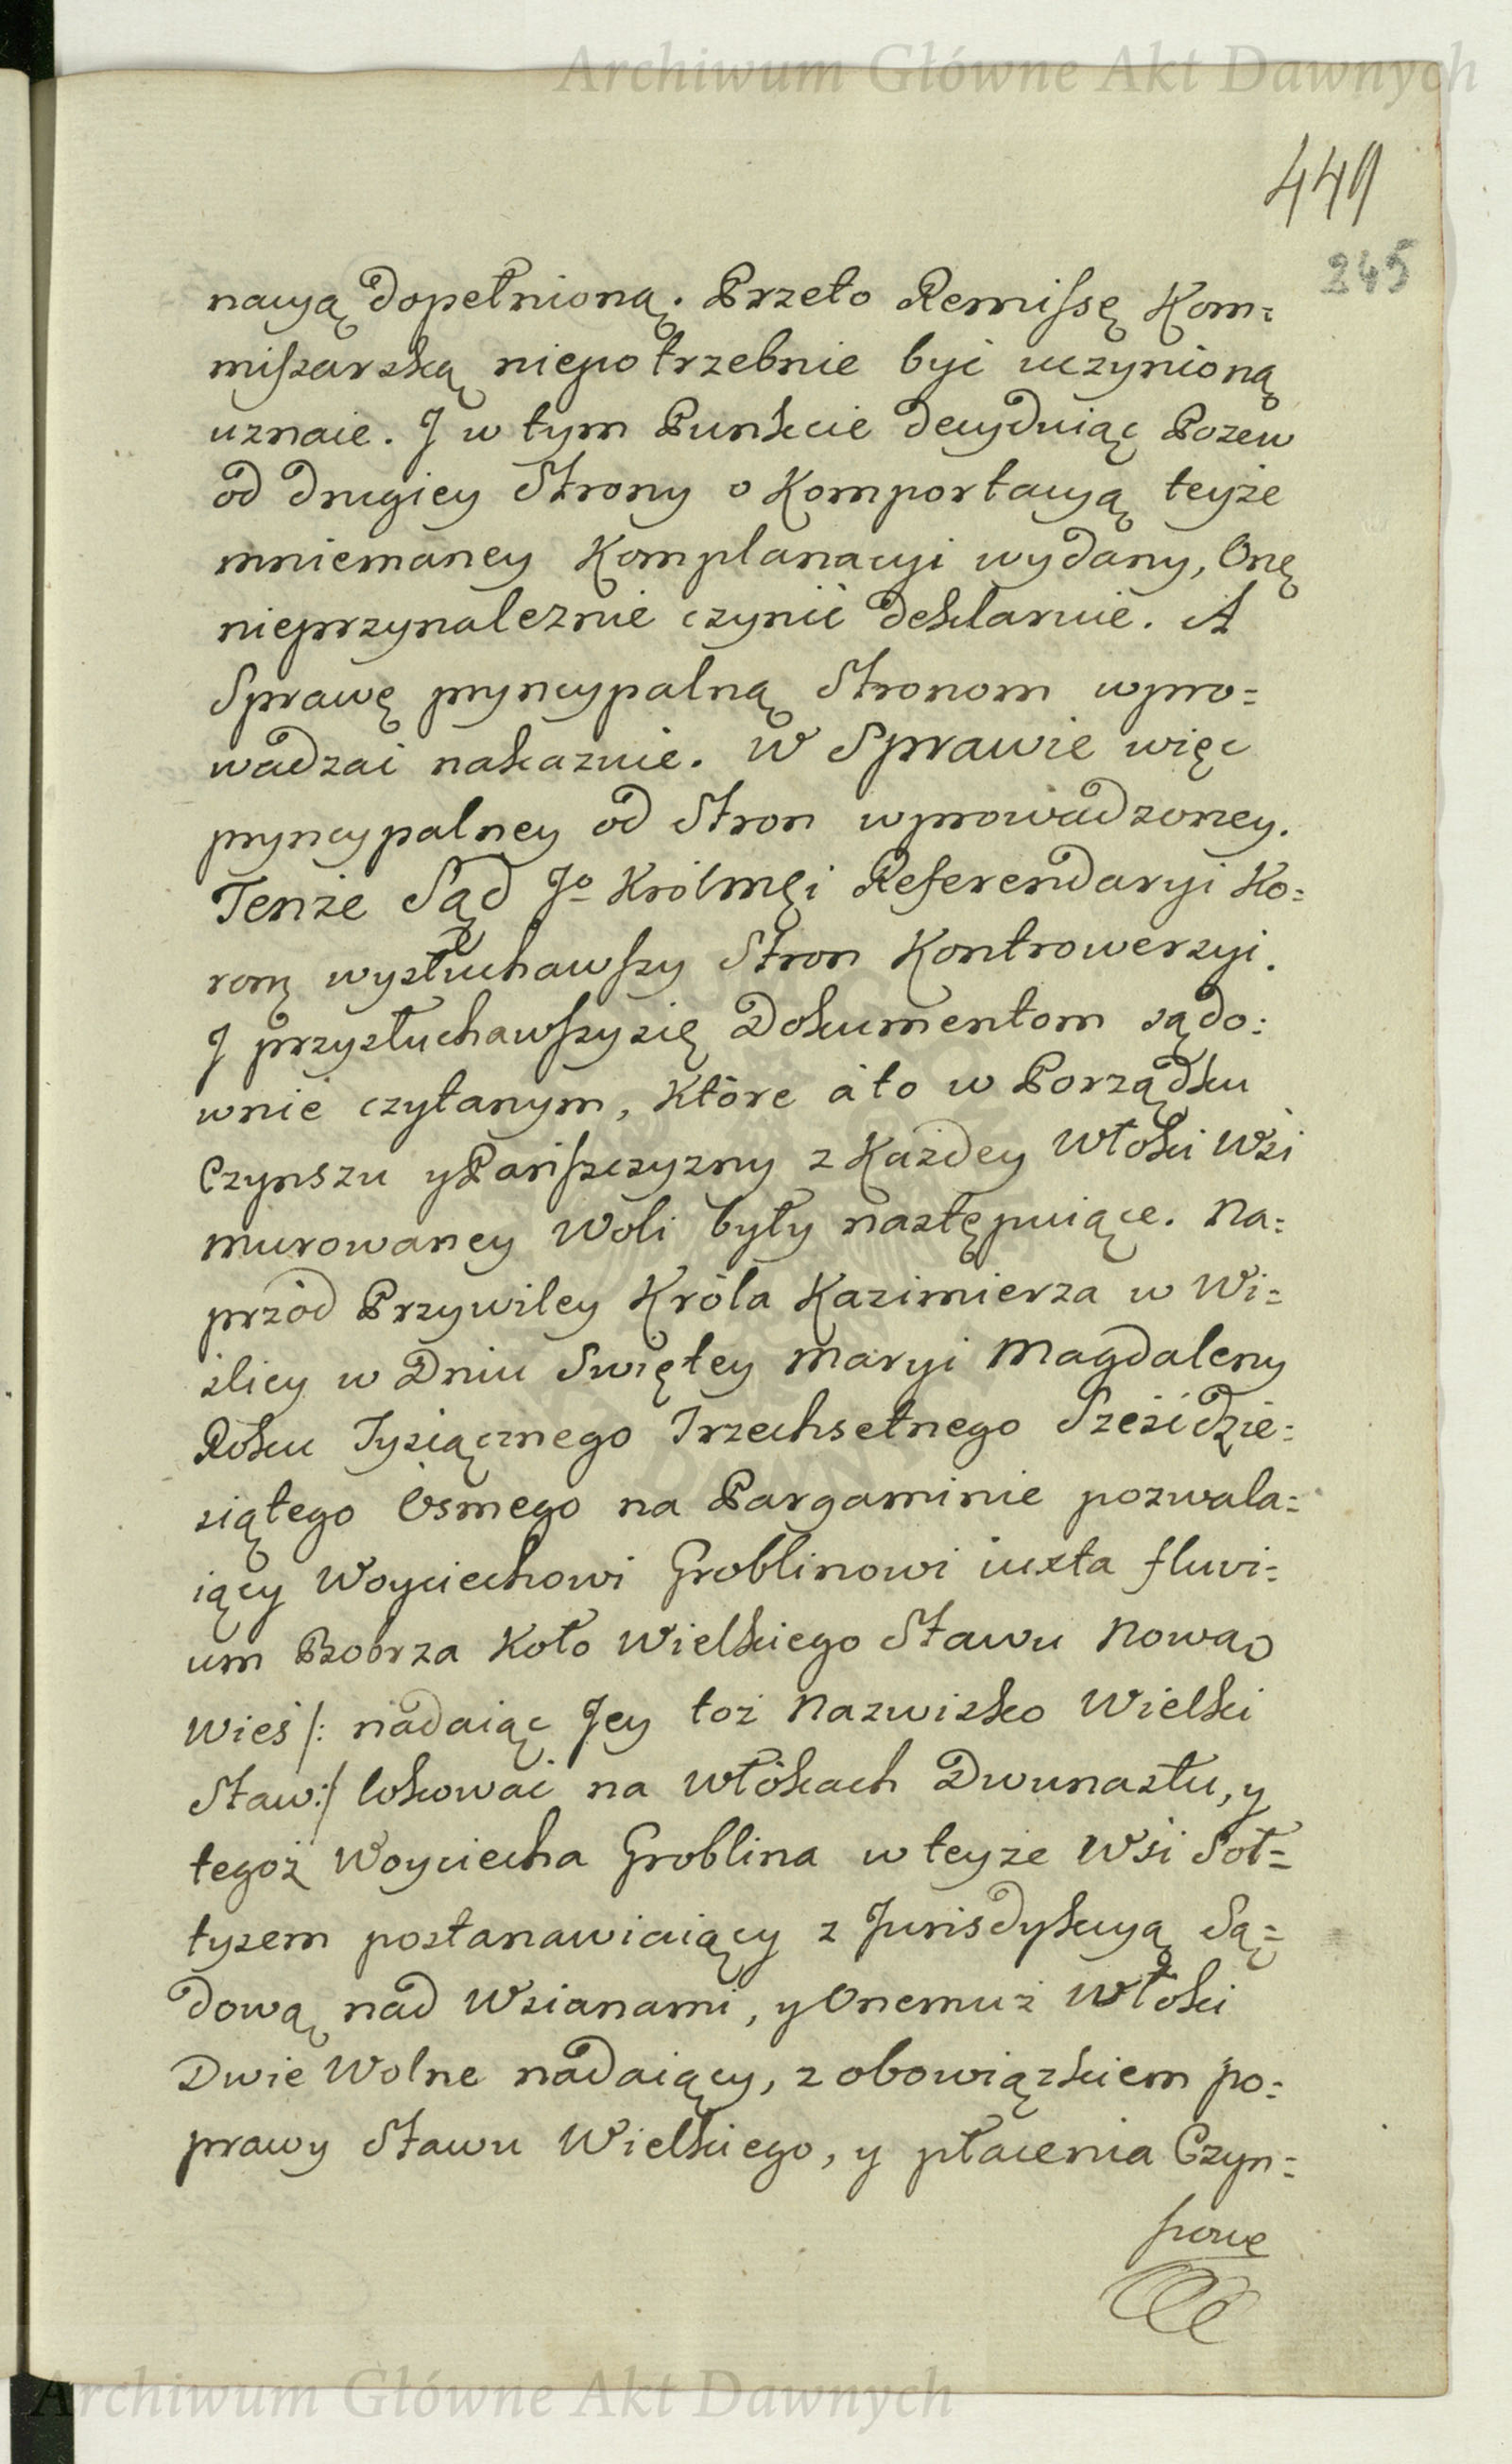 Archiwum Główne Akt Dawnych
449
245
nacyą dopełnioną. Przeto Remissę Kom=
missarską niepotrzebnie być uczynioną
uznaie. J w tym Punkcie decyduiąc Pozew
od drugiey Strony o Komportacyą teyże
mniemaney Komplanacyi wydany, Onę
nieprzynależnie czynić deklaruie. A
Sprawę pryncypalną Stronom wpro=
wadzać nakazuie. W Sprawie więc
pryncypalney od Stron wprowadzoney.
Tenże Sąd Jo Królmći Referendaryi Ko=
rony wysłuchawszy Stron Kontrowersyi.
J przysłuchawszy się Dokumentom sądo=
wnie czytanym, Które á to w Porządku
Czynszu y Pańszczyzny z Każdey Włoki Wsi
murowaney Woli były następuiące. Na=
przód Przywiley Króla Kazimierza w Wi=
ślicy w Dniu Swiętey Maryi Magdaleny
Roku Tysiącznego Trzechsetnego Sześćdzie=
siątego Osmego na Pargaminie pozwala=
iący Woyciechowi Groblinowi iuxta fluvi=
um Bobrza Koło Wielkiego Stawu Nową
Wieś /: nadaiąc Jey toż Nazwisko Wielki
Staw:/ lokować na Włókach Dwunastu, y
tegoż Woyciecha Groblina w teyże Wsi Soł=
tysem postanawiaiący z Jurisdykcyą Są=
dową nad Wsianami, y Onemuż Włoki
Dwie Wolne nadaiący, z obowiązkiem po=
prawy Stawu Wielkiego, y płacenia Czyn=
szowe
Archiwum Główne Akt Dawnych